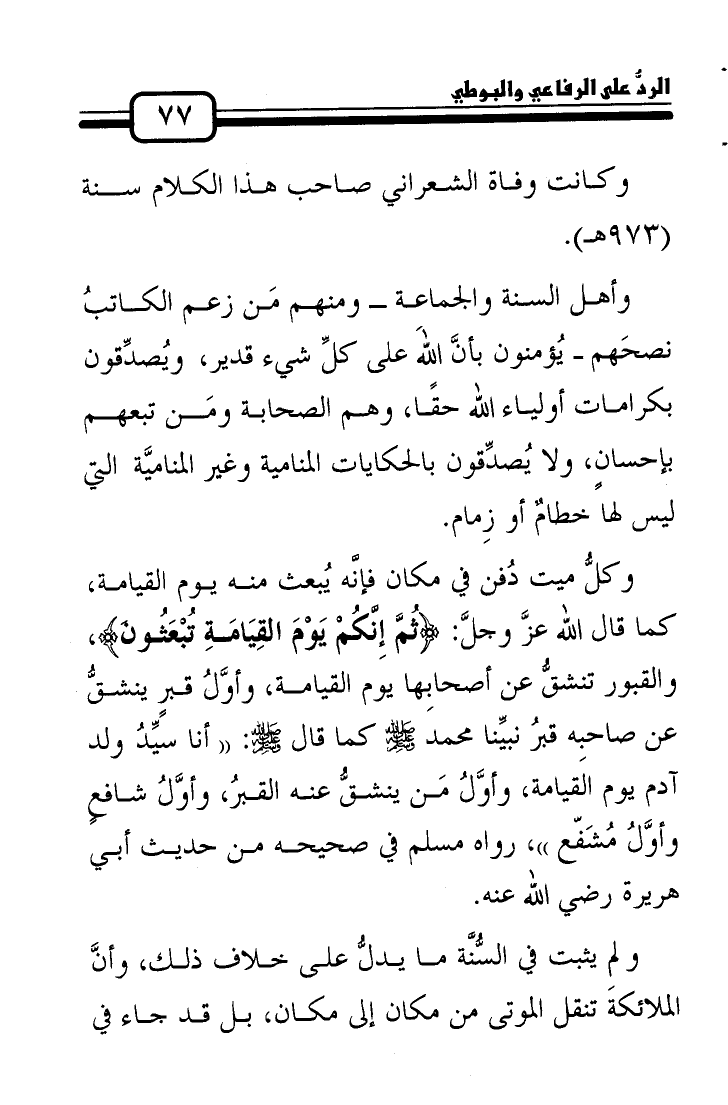 الردُّ على الرفاعي والبوطي
٧٧
وكانت وفاة الشعراني صاحب هذا الكلام سنة
(٩٧٣هـ).
وأهل السنة والجماعة ـ ومنهم مَن زعم الكاتبُ
نصحَهم ـ يُؤمنون بأنَّ اللهَ على كلِّ شيء قدير، ويُصدِّقون
بكرامات أولياء الله حقًّا، وهم الصحابة ومَن تبعهم
بإحسانٍ، ولا يُصدِّقون بالحكايات المنامية وغير المناميَّة التي
ليس لها خطامٌ أو زِمام.
وكلُّ ميت دُفن في مكان فإنَّه يُبعث منه يوم القيامة،
كما قال الله عزَّ وجلَّ: ﴿ثُمَّ إِنَّكُمْ يَوْمَ القِيَامَةِ تُبْعَثُونَ﴾،
والقبور تنشقُّ عن أصحابِها يوم القيامة، وأوَّلُ قبرٍ ينشقُّ
عن صاحبِه قبرُ نبيِّنا محمد ﷺ كما قال ﷺ: (( أنا سيِّدُ ولد
آدم يوم القيامة، وأوَّلُ مَن ينشقُّ عنه القبرُ، وأوَّلُ شافعٍ
وأوَّلُ مُشَفّع ))، رواه مسلم في صحيحه من حديث أبي
هريرة رضي الله عنه.
ولم يثبت في السُّنَّة ما يدلُّ على خلاف ذلك، وأنَّ
الملائكةَ تنقل الموتى من مكان إلى مكان، بل قد جاء في